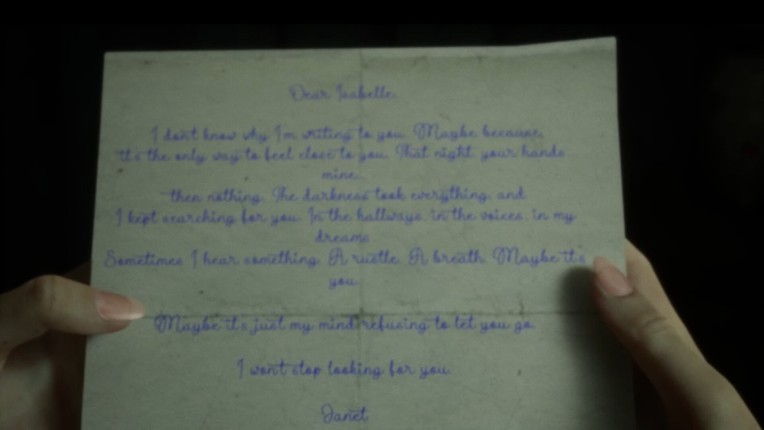 Dear Isabelle,
I don't know why I'm writing to you. Maybe because,
it's the only way to feel close to you. That night, your hands
mine...
then nothing. The darkness took everything, and
I kept searching for you. In the hallways, in the voices, in my
dreams.
Sometimes I hear something. A rustle. A breath. Maybe it's
you.
Maybe it's just my mind refusing to let you go.
I won't stop looking for you.
Janet